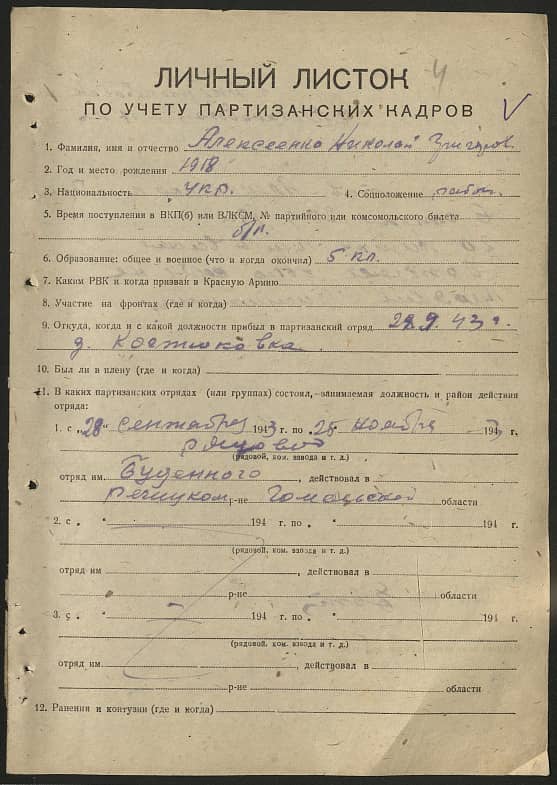 4
ЛИЧНЫЙ ЛИСТОК
ПО УЧЕТУ ПАРТИЗАНСКИХ КАДРОВ
1. Фамилия, имя и отчество Алексеенко Николай Григоров.
2. Год и место рождения 1918
3. Национальность укр. 4. Соцположение рабоч.
5. Время поступления в ВКП(б) или ВЛКСМ, № партийного или комсомольского билета
б/п.
6. Образование: общее и военное (что и когда окончил) 5 кл.
7. Каким РВК и когда призван в Красную Армию
8. Участие на фронтах (где и когда)
9. Откуда, когда и с какой должности прибыл в партизанский отряд 28.9.43 г.
д.
10. Был ли в плену (где и когда)
11. В каких партизанских отрядах (или группах) состоял, занимаемая должность и район действия
отряда:
1. с „28“ сентября 1943 г. по „25“ ноября 1943 г.
рядовой
(рядовой, ком. взвода и т. д.)
отряд им Буденного, действовал в
Речицком р-не Гомельской области
2. с „ “ 194 г. по „ “ 194 г.
(рядовой, ком. взвода и т. д.)
отряд им, действовал в
р-не области
3. с „ “ 194 г. по „ “ 194 г.
(рядовой, ком. взвода и т. д.)
отряд им., действовал в
р-не области
12. Ранения и контузии (где и когда)